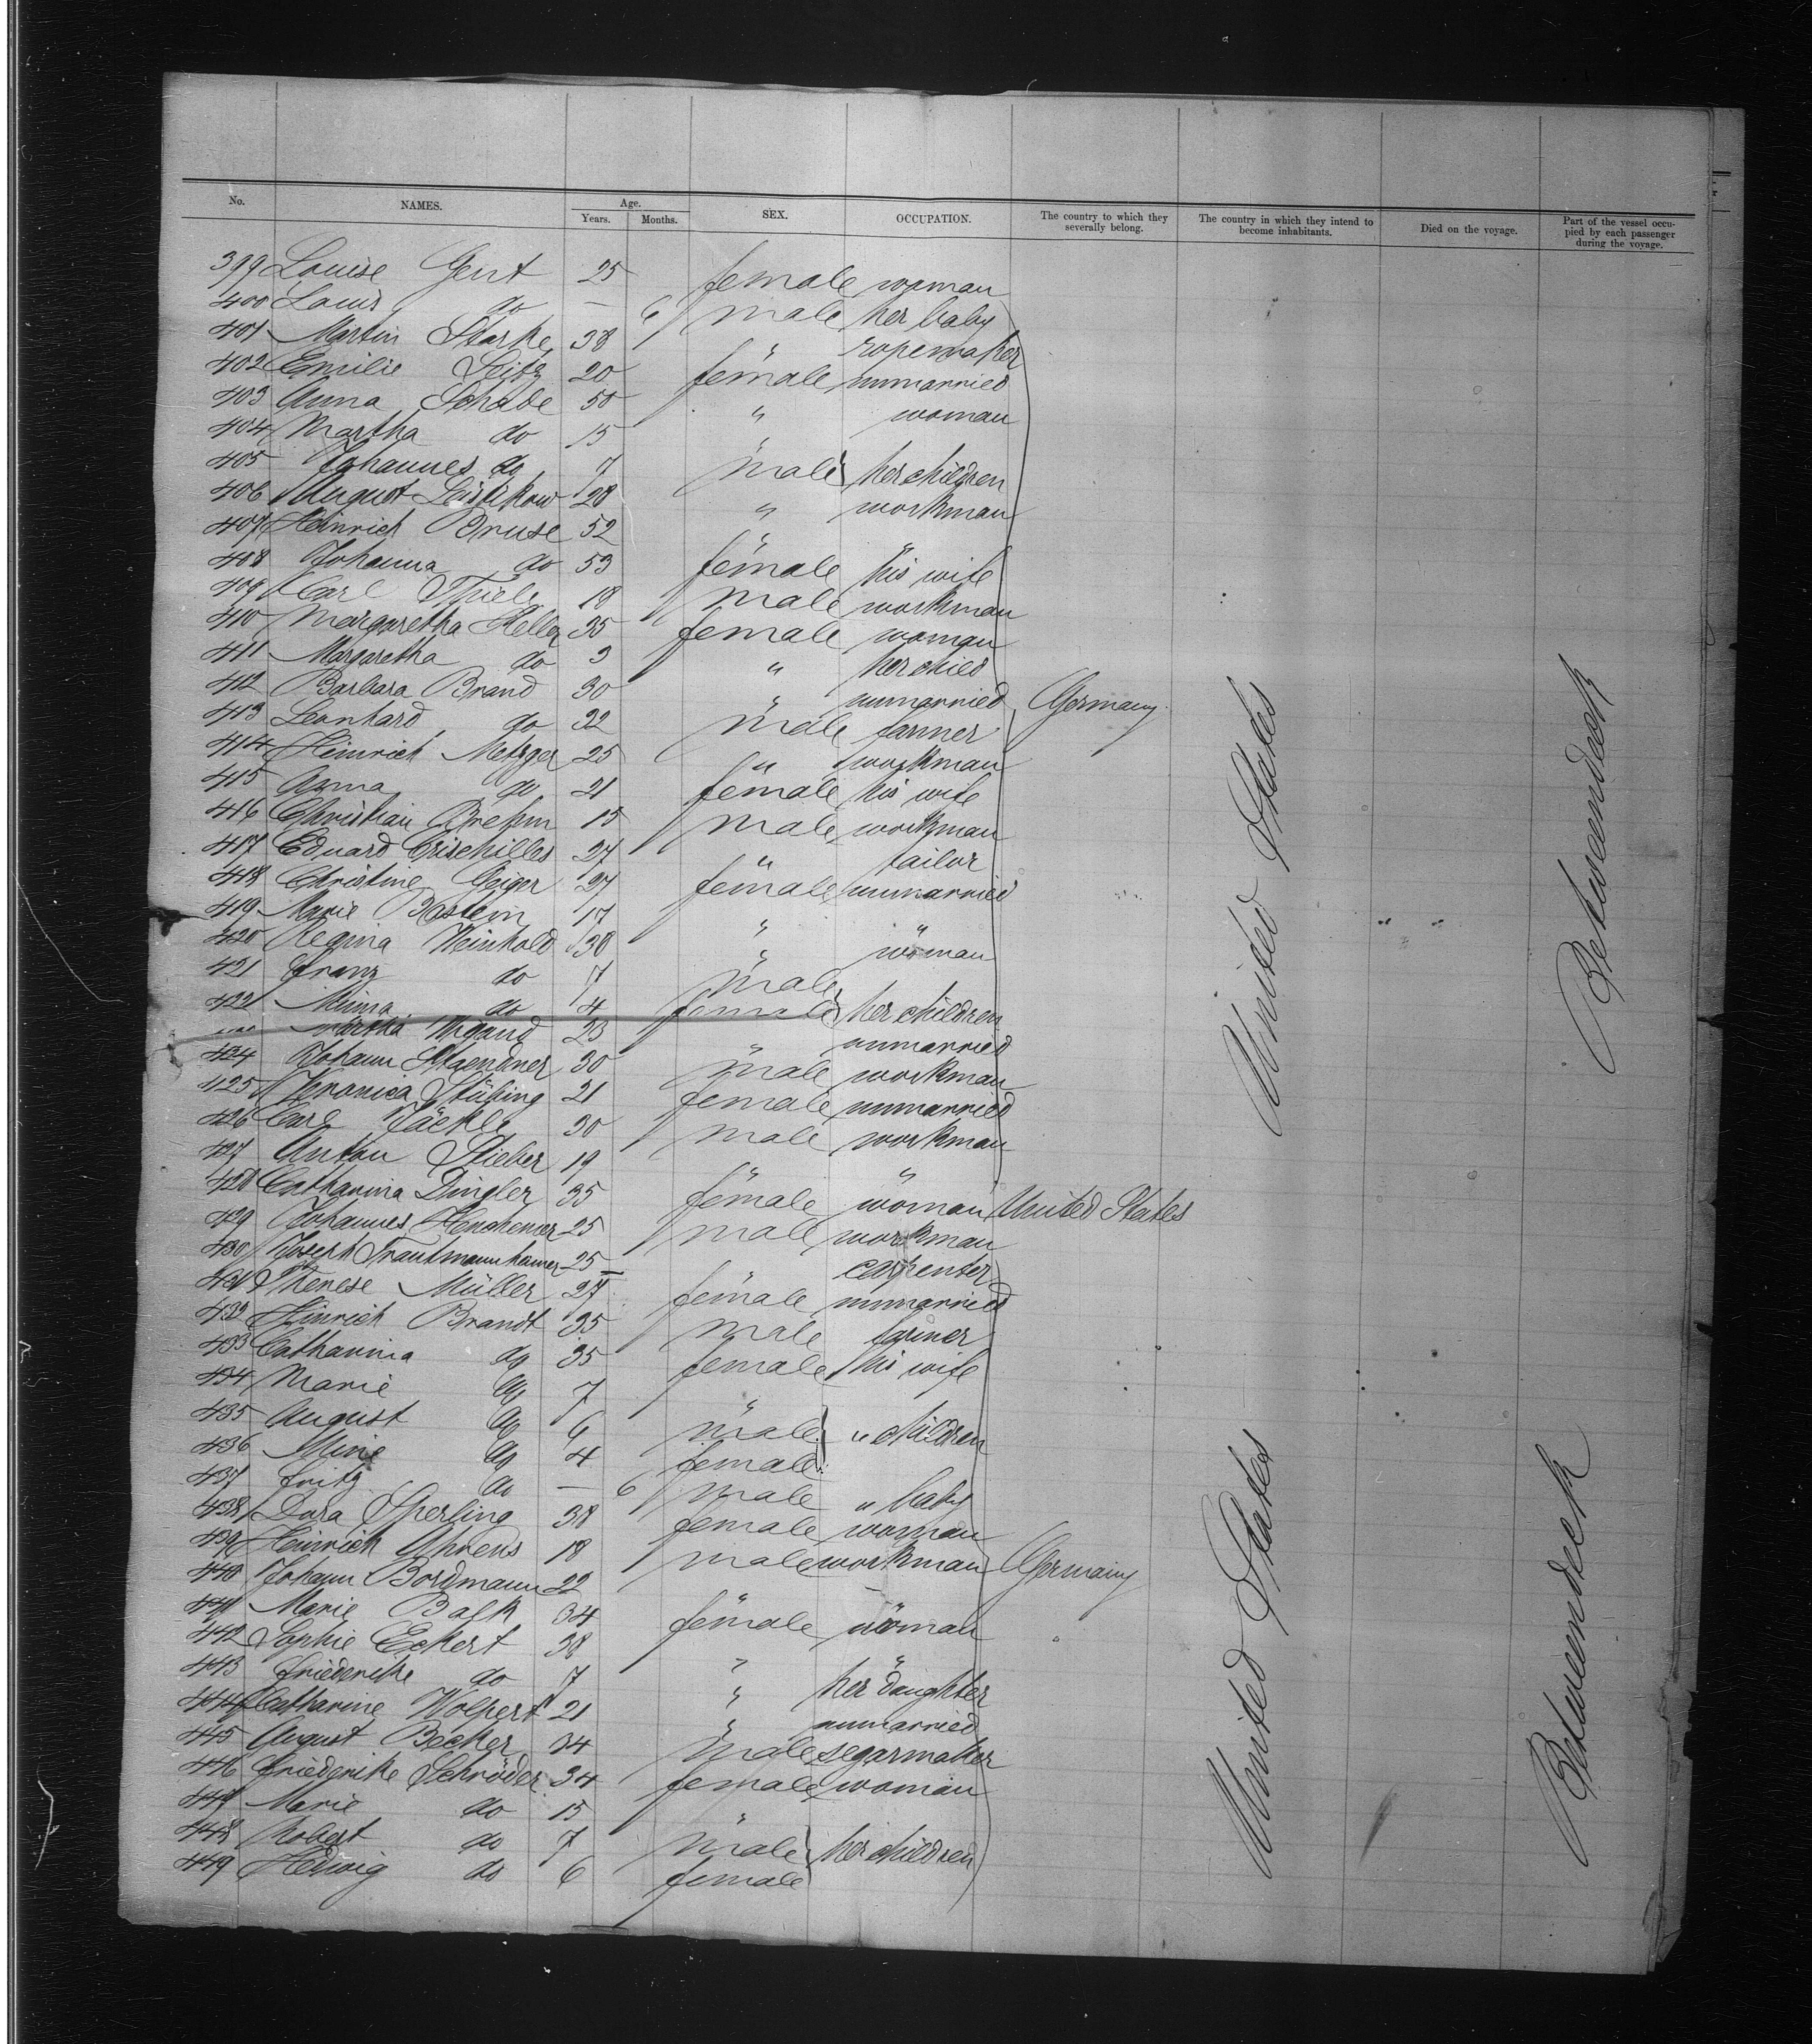 No. NAMES. Age. Years. Months. SEX. OCCUPATION. The country to which they severally belong. The country in which they intend to become inhabitants. Died on the voyage. Part of the vessel occupied by each passenger during the voyage.
399 Louise Gent 25 female woman
400 Louis do — 6 male her baby
401 Martin Starke 38 " ropemaker
402 Emilie Seitz 20 female unmarried
403 Anna Schade 50 " woman
404 Martha do 15 "
405 Johannes do 7 male her children
406 August Leistikow 28 " workman
407 Heinrich Kruse 52 " "
408 Johanna do 53 female his wife
409 Carl Thiele 18 male workman
410 Margaretha Heller 35 female woman
411 Margaretha do 3 " her child
412 Barbara Brand 30 " unmarried Germany
413 Leonhard do 32 male farmer
414 Heinrich Metzger 25 " workman
415 Anna do 21 female his wife
416 Christian Brehm 15 male workman
417 Eduard 27 " tailor
418 Christine Geiger 27 female unmarried
419 Marie 17 " "
420 Regina Weinhold 30 " woman
421 Franz do 7 male
422 Minna do 4 female her children
Martha Wigand 23 " unmarried
424 Johann 30 male workman
425 Veronica Stübing 21 female unmarried
426 Carl Jäckle 30 male workman
427 Anton Stieber 19 " "
428 Catharina Dingler 35 female woman United States
429 Johannes 25 male workman
430 Joseph Trautmannhamer 25 " carpenter
431 Therese Müller 27 female unmarried
432 Hinrich Brandt 35 male farmer
433 Catharina do 35 female his wife
434 Marie do 7 "
435 August do 6 male " children
436 Mine do 4 female
437 Fritz do — 6 male " baby
438 Dora Sperling 38 female woman
439 Heinrich Ahrens 18 male workman Germany
440 Johann Bordmann 22 " "
441 Marie Balk 34 female woman
442 Sophie Eckert 38 " "
443 Friederike do 7 " her daughter
444 Catharine Wolpert 21 " unmarried
445 August Becker 34 male segarmaker
446 Friederike Schröder 34 female woman
447 Marie do 15 "
448 Robert do 7 male her children
449 Hedwig do 6 female
United States
Betwaendack
United States
Betweendeck